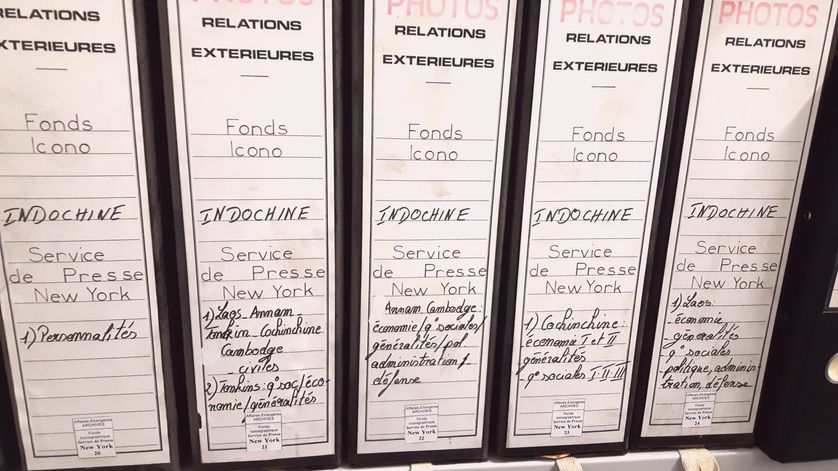 RELATIONS
EXTERIEURES
Fonds
Icono
INDOCHINE
Service
de Presse
New York
1) Personnalités
Affaires Etrangères
ARCHIVES
Fonds
iconographique
Service de Presse
New York
20
PHOTOS
RELATIONS
EXTERIEURES
Fonds
Icono
INDOCHINE
Service
de Presse
New York
1) Laos_Annam_
Tonkin_Cochinchine
Cambodge
_civiles
2) Tonkins: q° soc/éco-
nomie/généralités
Affaires Etrangères
ARCHIVES
Fonds
iconographique
Service de Presse
New York
21
PHOTOS
RELATIONS
EXTERIEURES
Fonds
Icono
INDOCHINE
Service
de Presse
New York
Annam_Cambodge:
économie/q° sociales/
généralités/pol.
administration/
défense
Affaires Etrangères
ARCHIVES
Fonds
iconographique
Service de Presse
New York
22
PHOTOS
RELATIONS
EXTERIEURES
Fonds
Icono
INDOCHINE
Service
de Presse
New York
1) Cochinchine:
économie I et II
généralités
_q° sociales I-II-III
Affaires Etrangères
ARCHIVES
Fonds
iconographique
Service de Presse
New York
23
PHOTOS
RELATIONS
EXTERIEURES
Fonds
Icono
INDOCHINE
Service
de Presse
New York
1) Laos:
_économie
_généralités
q° sociales
politique, adminis-
tration, défense
Affaires Etrangères
ARCHIVES
Fonds
iconographique
Service de Presse
New York
24